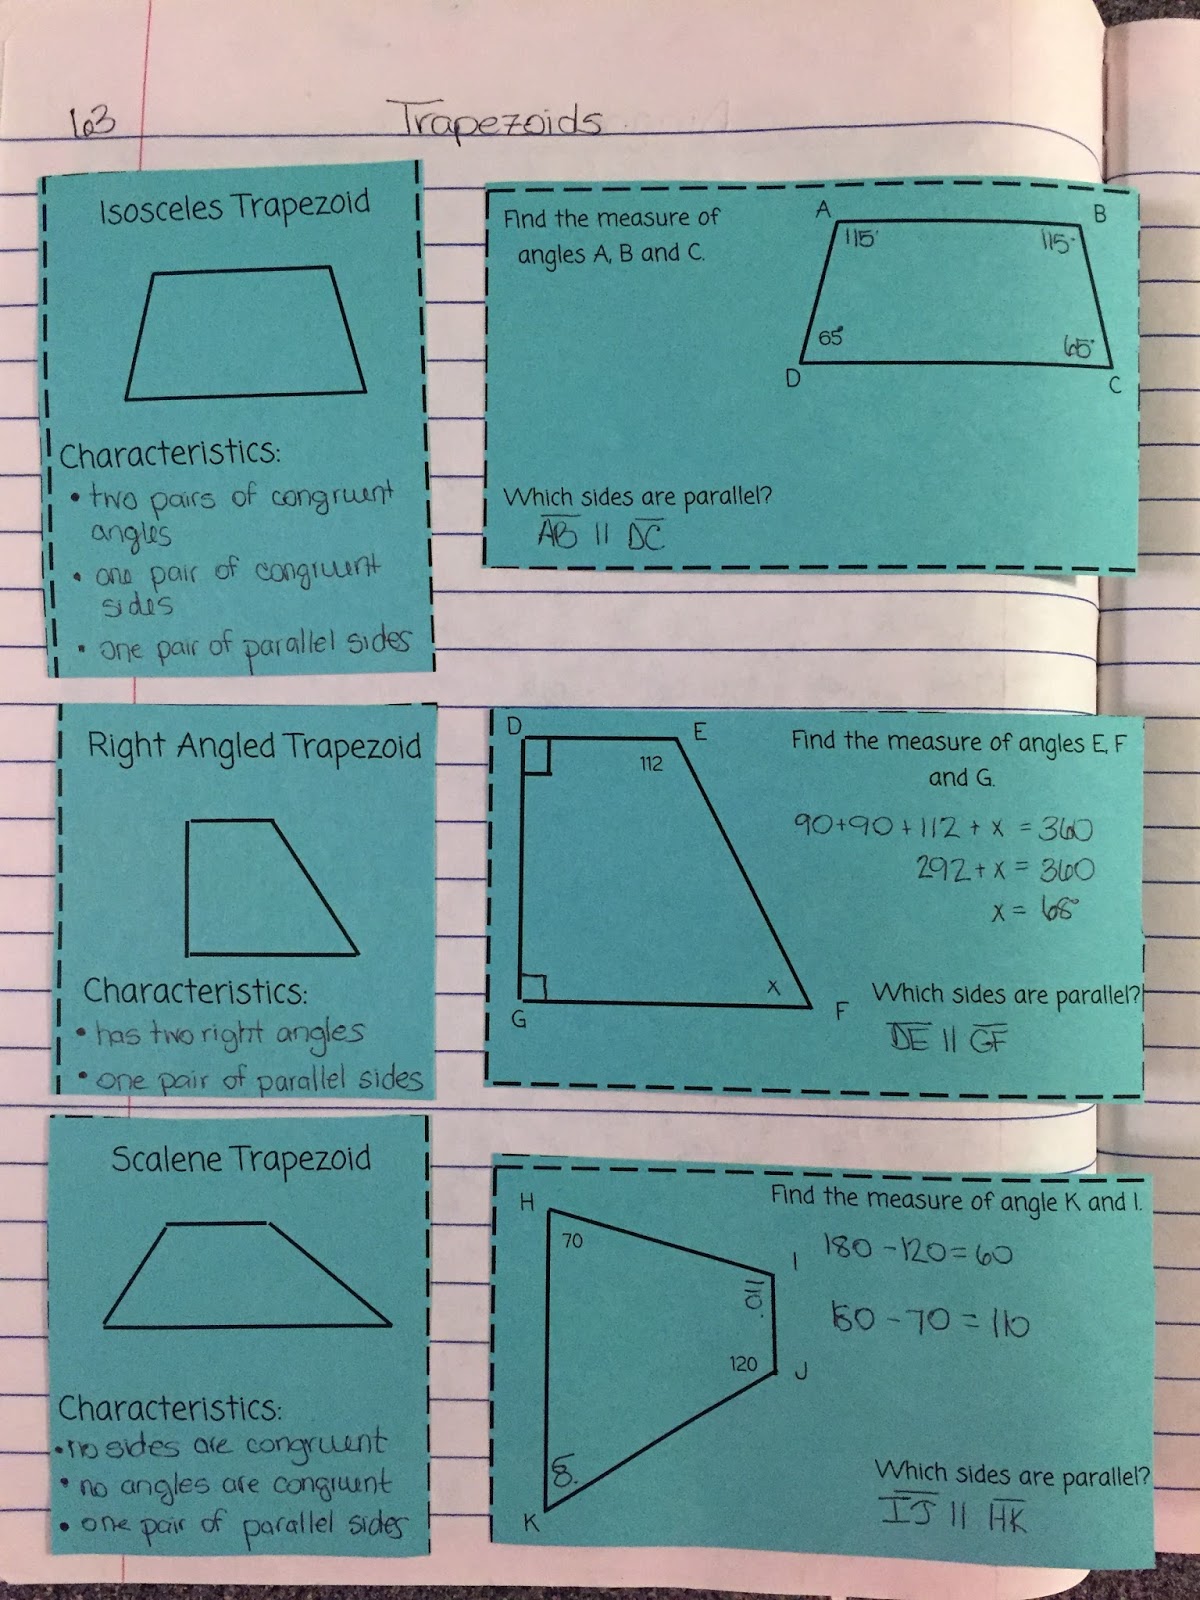 63
Trapezoids
Isosceles Trapezoid
Characteristics:
• two pairs of congruent
angles
• one pair of congruent
sides
• one pair of parallel sides
Find the measure of
angles A, B and C.
A
B
115°
115°
65°
65°
D
C
Which sides are parallel?
AB || DC
Right Angled Trapezoid
Characteristics:
• has two right angles
• one pair of parallel sides
D
E
112
G
x
F
Find the measure of angles E, F
and G.
90+90+112+x = 360
292+x = 360
x = 68°
Which sides are parallel?
DE || GF
Scalene Trapezoid
Characteristics:
• no sides are congruent
• no angles are congruent
• one pair of parallel sides
H
70
I
110°
120
J
60°
K
Find the measure of angle K and I.
180-120=60
180-70=110
Which sides are parallel?
IJ || HK